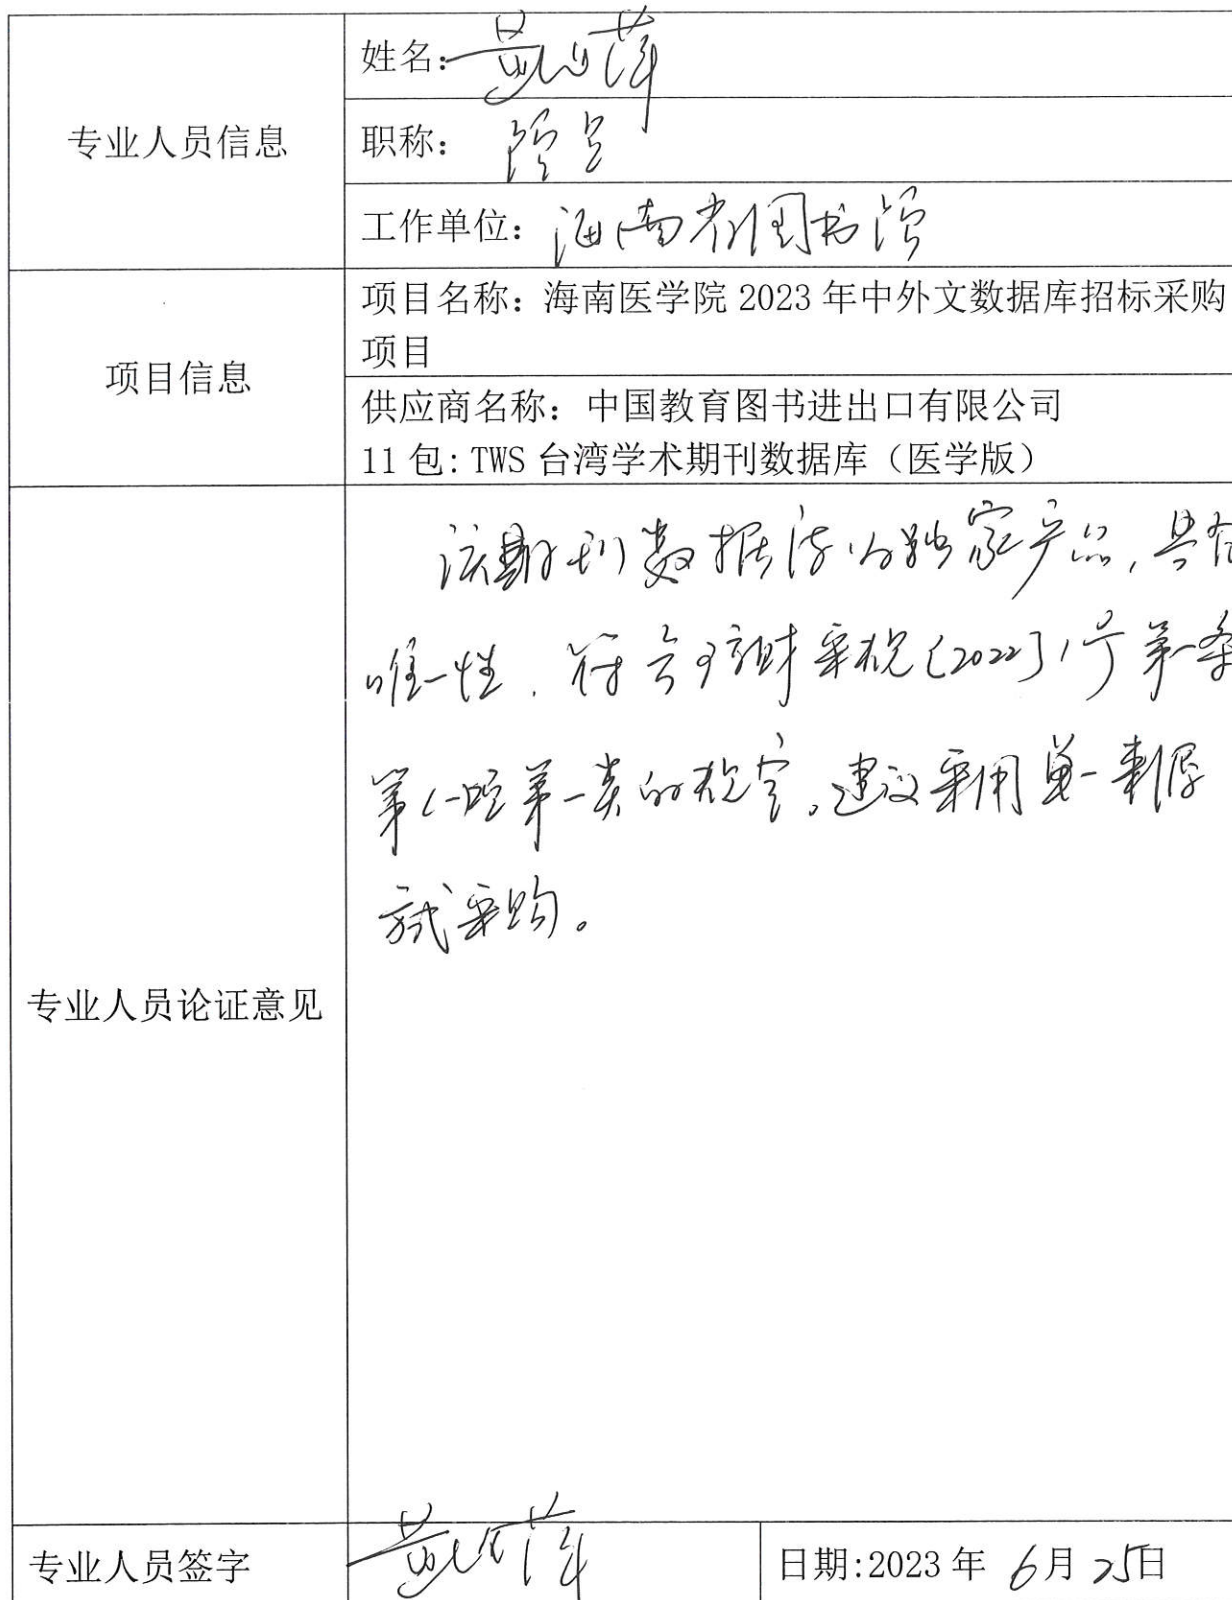 专业人员信息
姓名：
职称：
工作单位：海南省图书馆
项目信息
项目名称：海南医学院 2023 年中外文数据库招标采购
项目
供应商名称：中国教育图书进出口有限公司
11 包：TWS 台湾学术期刊数据库（医学版）
专业人员论证意见
该期刊数据库为独家产品，具有
唯一性，符合琼财采规〔2022〕1号第一条
第(一)第一类的规定，建议采用单一来源
方式采购。
专业人员签字
日期:2023 年 6月 25日